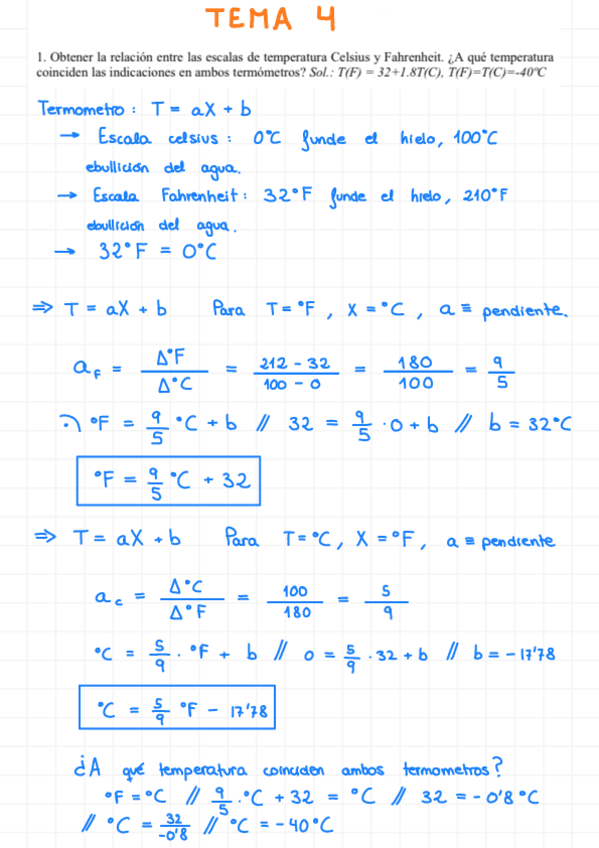 TEMA 4
1. Obtener la relación entre las escalas de temperatura Celsius y Fahrenheit. ¿A qué temperatura
coinciden las indicaciones en ambos termómetros? Sol.: T(F) = 32+1.8T(C), T(F)=T(C)=-40ºC
Termometro : T = aX + b
→ Escala celsius : 0°C funde el hielo, 100°C
ebullición del agua.
→ Escala Fahrenheit : 32°F funde el hielo, 210°F
ebullición del agua.
→ 32°F = 0°C
⇒ T = aX + b Para T = °F , X = °C , a ≡ pendiente.
a_F = Δ°F / Δ°C = 212 - 32 / 100 - 0 = 180 / 100 = 9 / 5
°F = 9/5 °C + b // 32 = 9/5 · 0 + b // b = 32°C
°F = 9/5 °C + 32
⇒ T = aX + b Para T = °C , X = °F , a ≡ pendiente
a_c = Δ°C / Δ°F = 100 / 180 = 5 / 9
°C = 5/9 · °F + b // 0 = 5/9 · 32 + b // b = - 17'78
°C = 5/9 °F - 17'78
¿A qué temperatura coinciden ambos termometros?
°F = °C // 9/5 · °C + 32 = °C // 32 = - 0'8 °C
// °C = 32/-0'8 // °C = - 40°C